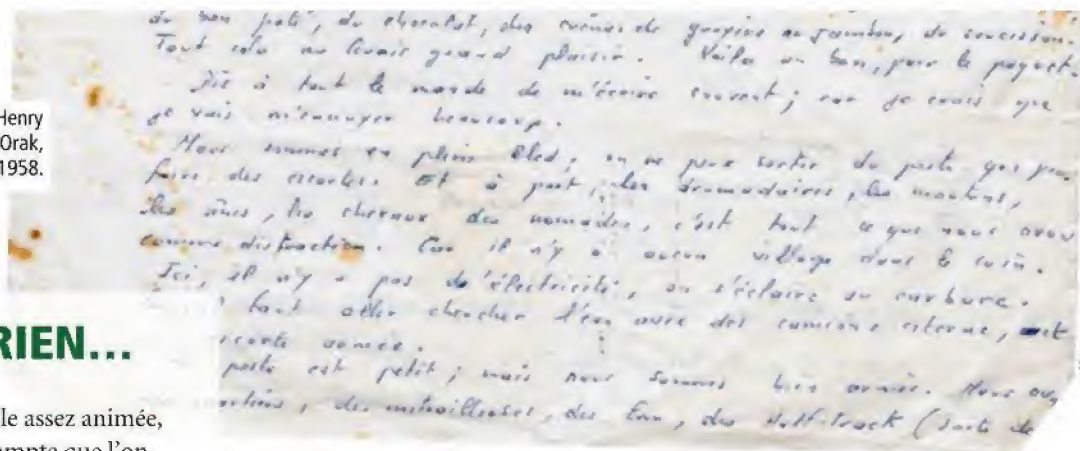 Henry
Orak,
1958.
du bon paté, du chocolat, des crèmes de gruyère au jambon, du saucisson.
Tout cela me ferait grand plaisir. Voila un bon, pour le paquet.
Dis à tout le monde de m'écrire souvent; car je crois que
je vais m'ennuyer beaucoup.
Nous sommes en plein bled, on ne peux sortir du poste que pour
faire des escortes. Et à part, les dromadaires, les moutons,
les ânes, les chevaux des nomades, c'est tout ce que nous avons
comme distraction. Car il n'y a aucun village dans le coin.
Ici, il n'y a pas de l'électricité, on s'éclaire au carbure.
faut aller chercher l'eau avec des camions citerne, et
escorte armée.
poste est petit; mais nous sommes bien armés. Nous av
mortiers, des mitrailleuses, des, des Half-Track (sorte de
RIEN...
le assez animée,
ompte que l'on